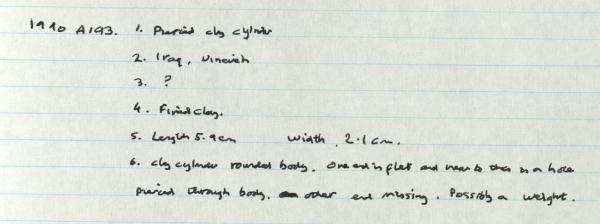 1990 A193. 1. Pierced clay cylinder
2. Iraq, Nineveh
3. ?
4. Fired clay.
5. Length 5.9cm width 2.1cm.
6. clay cylinder rounded body. One end is flat and near to this is a hole
pierced through body. other end missing. Possibly a weight.